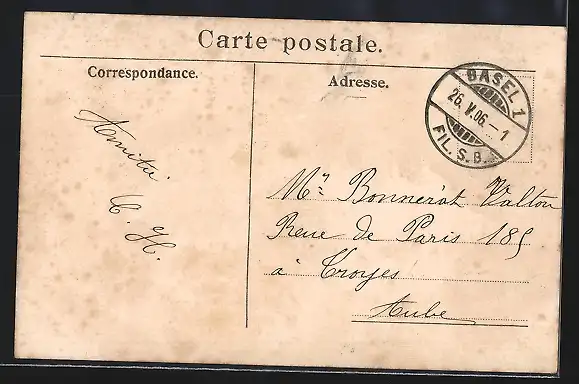 Carte postale.
Correspondance.
Amitié
C. H.
Adresse.
BASEL 1
26. V. 06. – 1
FIL. S. B.
Mr Bonnerot Valton
Reue de Paris 185
à Troyes
Aube